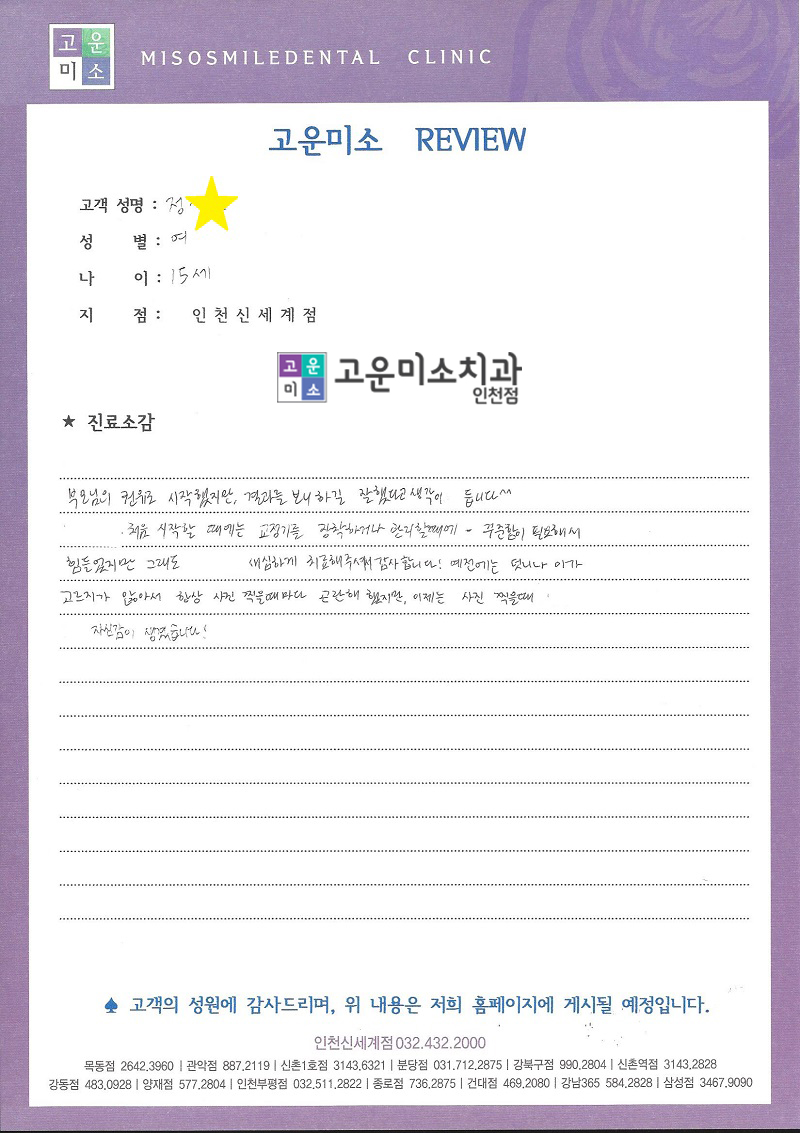 고운
미소
MISOSMILEDENTAL CLINIC
고운미소 REVIEW
고객 성명 : 정
성 별 : 여
나 이 : 15세
지 점 : 인천신세계점
고운
미소
고운미소치과
인천점
★ 진료소감
부모님의 권유로 시작했지만, 결과를 보니 하길 잘했다고 생각이 듭니다^^
처음 시작할 때에는 교정기를 장착하거나 관리할때에 - 꾸준함이 필요해서
힘들었지만 그래도 세심하게 치료해주셔서 감사합니다! 예전에는 덧니나 이가
고르지가 않아서 항상 사진 찍을때마다 곤란해 했지만, 이제는 사진 찍을때
자신감이 생겼습니다!
♠ 고객의 성원에 감사드리며, 위 내용은 저희 홈페이지에 게시될 예정입니다.
인천신세계점 032.432.2000
목동점 2642.3960 | 관악점 887.2119 | 신촌1호점 3143.6321 | 분당점 031.712.2875 | 강북구점 990.2804 | 신촌역점 3143.2828
강동점 483.0928 | 양재점 577.2804 | 인천부평점 032.511.2822 | 종로점 736.2875 | 건대점 469.2080 | 강남365 584.2828 | 삼성점 3467.9090